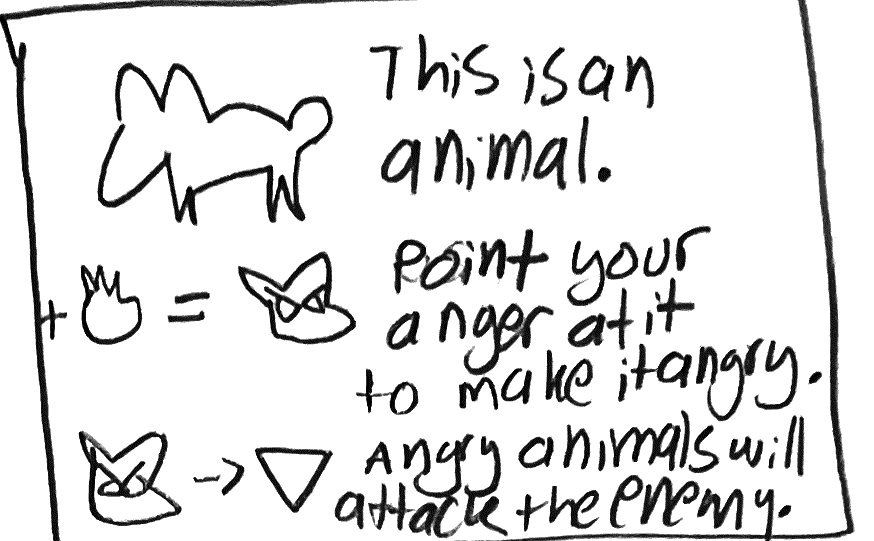 This is an
animal.
+ = Point your
anger at it
to make it angry.
-> Angry animals will
attack the enemy.